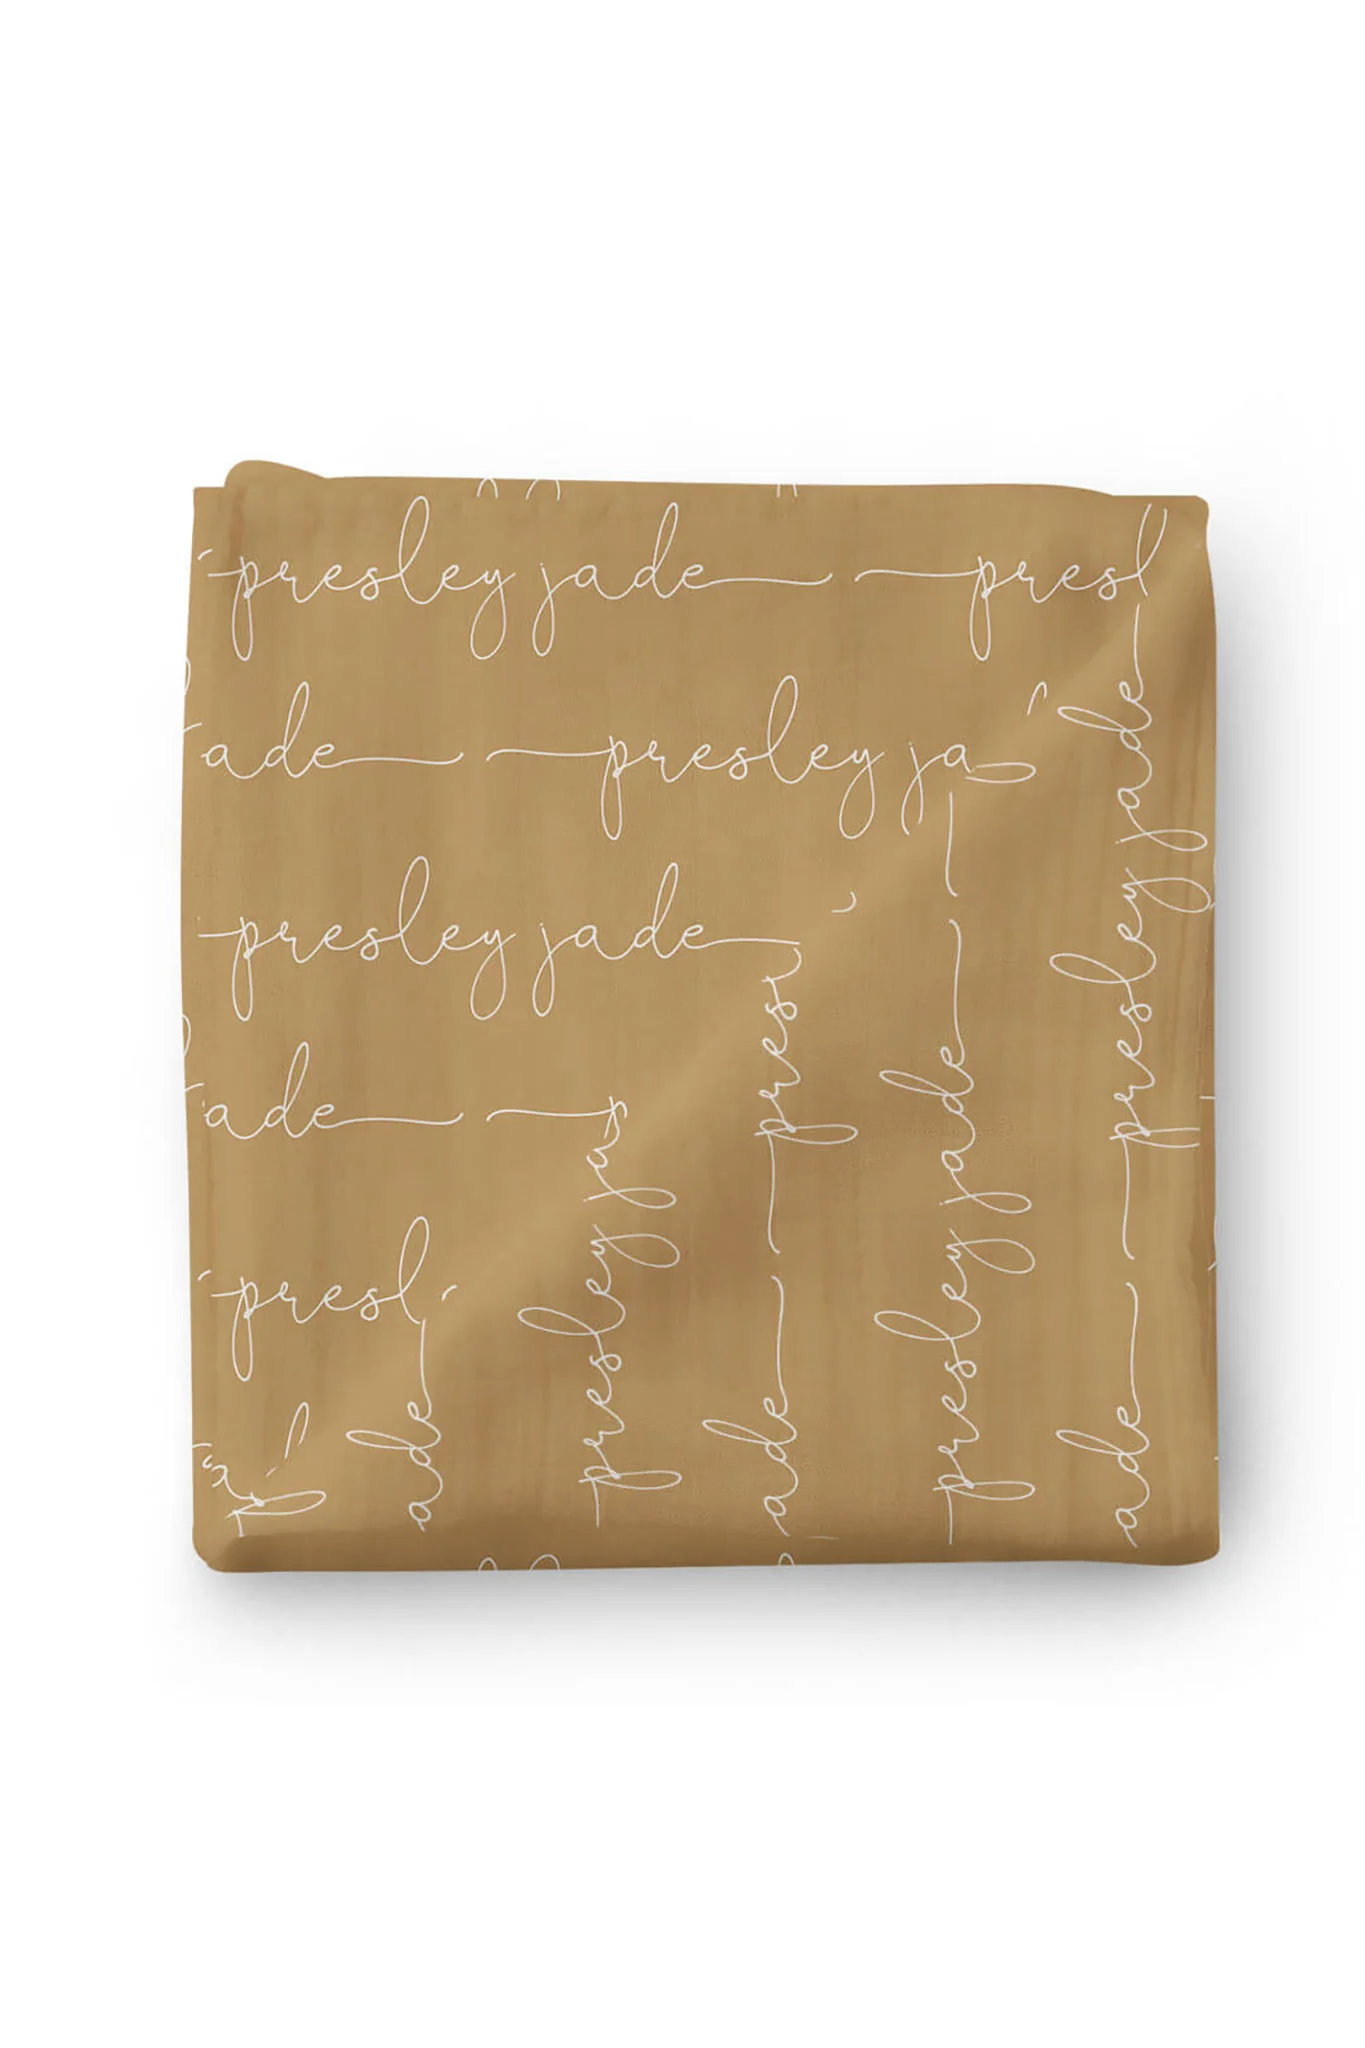 presley jade presl
ade presley ja
presley jade
ade
presl
presley jade
presley jade
pres
presley ja
ade
ade
ade